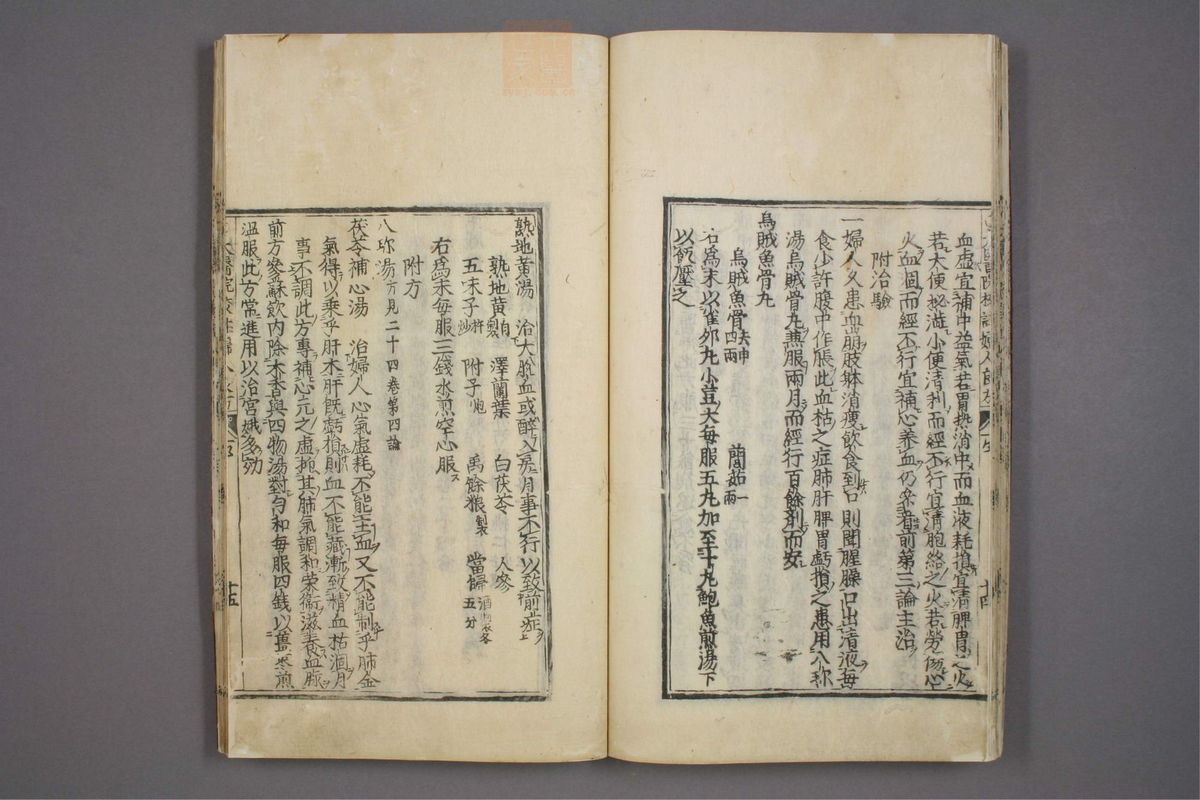 血虛宜補中益氣若胃熱消中而血液耗損宜清脾胃之火
若大便秘澁小便清利而經不行宜清胞絡之火若勞傷心
火血涸而經不行宜補心養血仍參看前第三論主治
附治驗
一婦人久患血崩肢躰消瘦飲食到口則聞腥臊口出清液每
食少許腹中作脹此血枯之症肺肝脾胃虧損之患用八珎
湯烏賊骨丸兼服兩月而經行百餘劑而安
烏賊魚骨丸
烏賊魚骨去甲四兩 藘茹一兩
右為末以雀卵丸小豆大每服五丸加至十丸鮑魚煎湯下
以飯壓之
十四
熟地黃湯 治大脫血或醉入房月事不行以致前症
熟地黃自製 澤蘭葉 白茯苓 人參
五味子杵炒 附子炮 禹餘粮製 當㱕酒製各五分
右為末每服三錢水煎空心服
附方
八珎湯方見二十四卷第四論
茯苓補心湯 治婦人心氣虛耗不能主血又不能制乎肺金
氣得以乘乎肝木肝既虧損則血不能藏漸致精血枯涸月
事不調此方專補心元之虛捴其肺氣調和荣衞滋養血脈
前方參蘇飲內除木香與四物湯對勻和每服四錢以薑煎
溫服此方常進用以治宮娥多効
十五